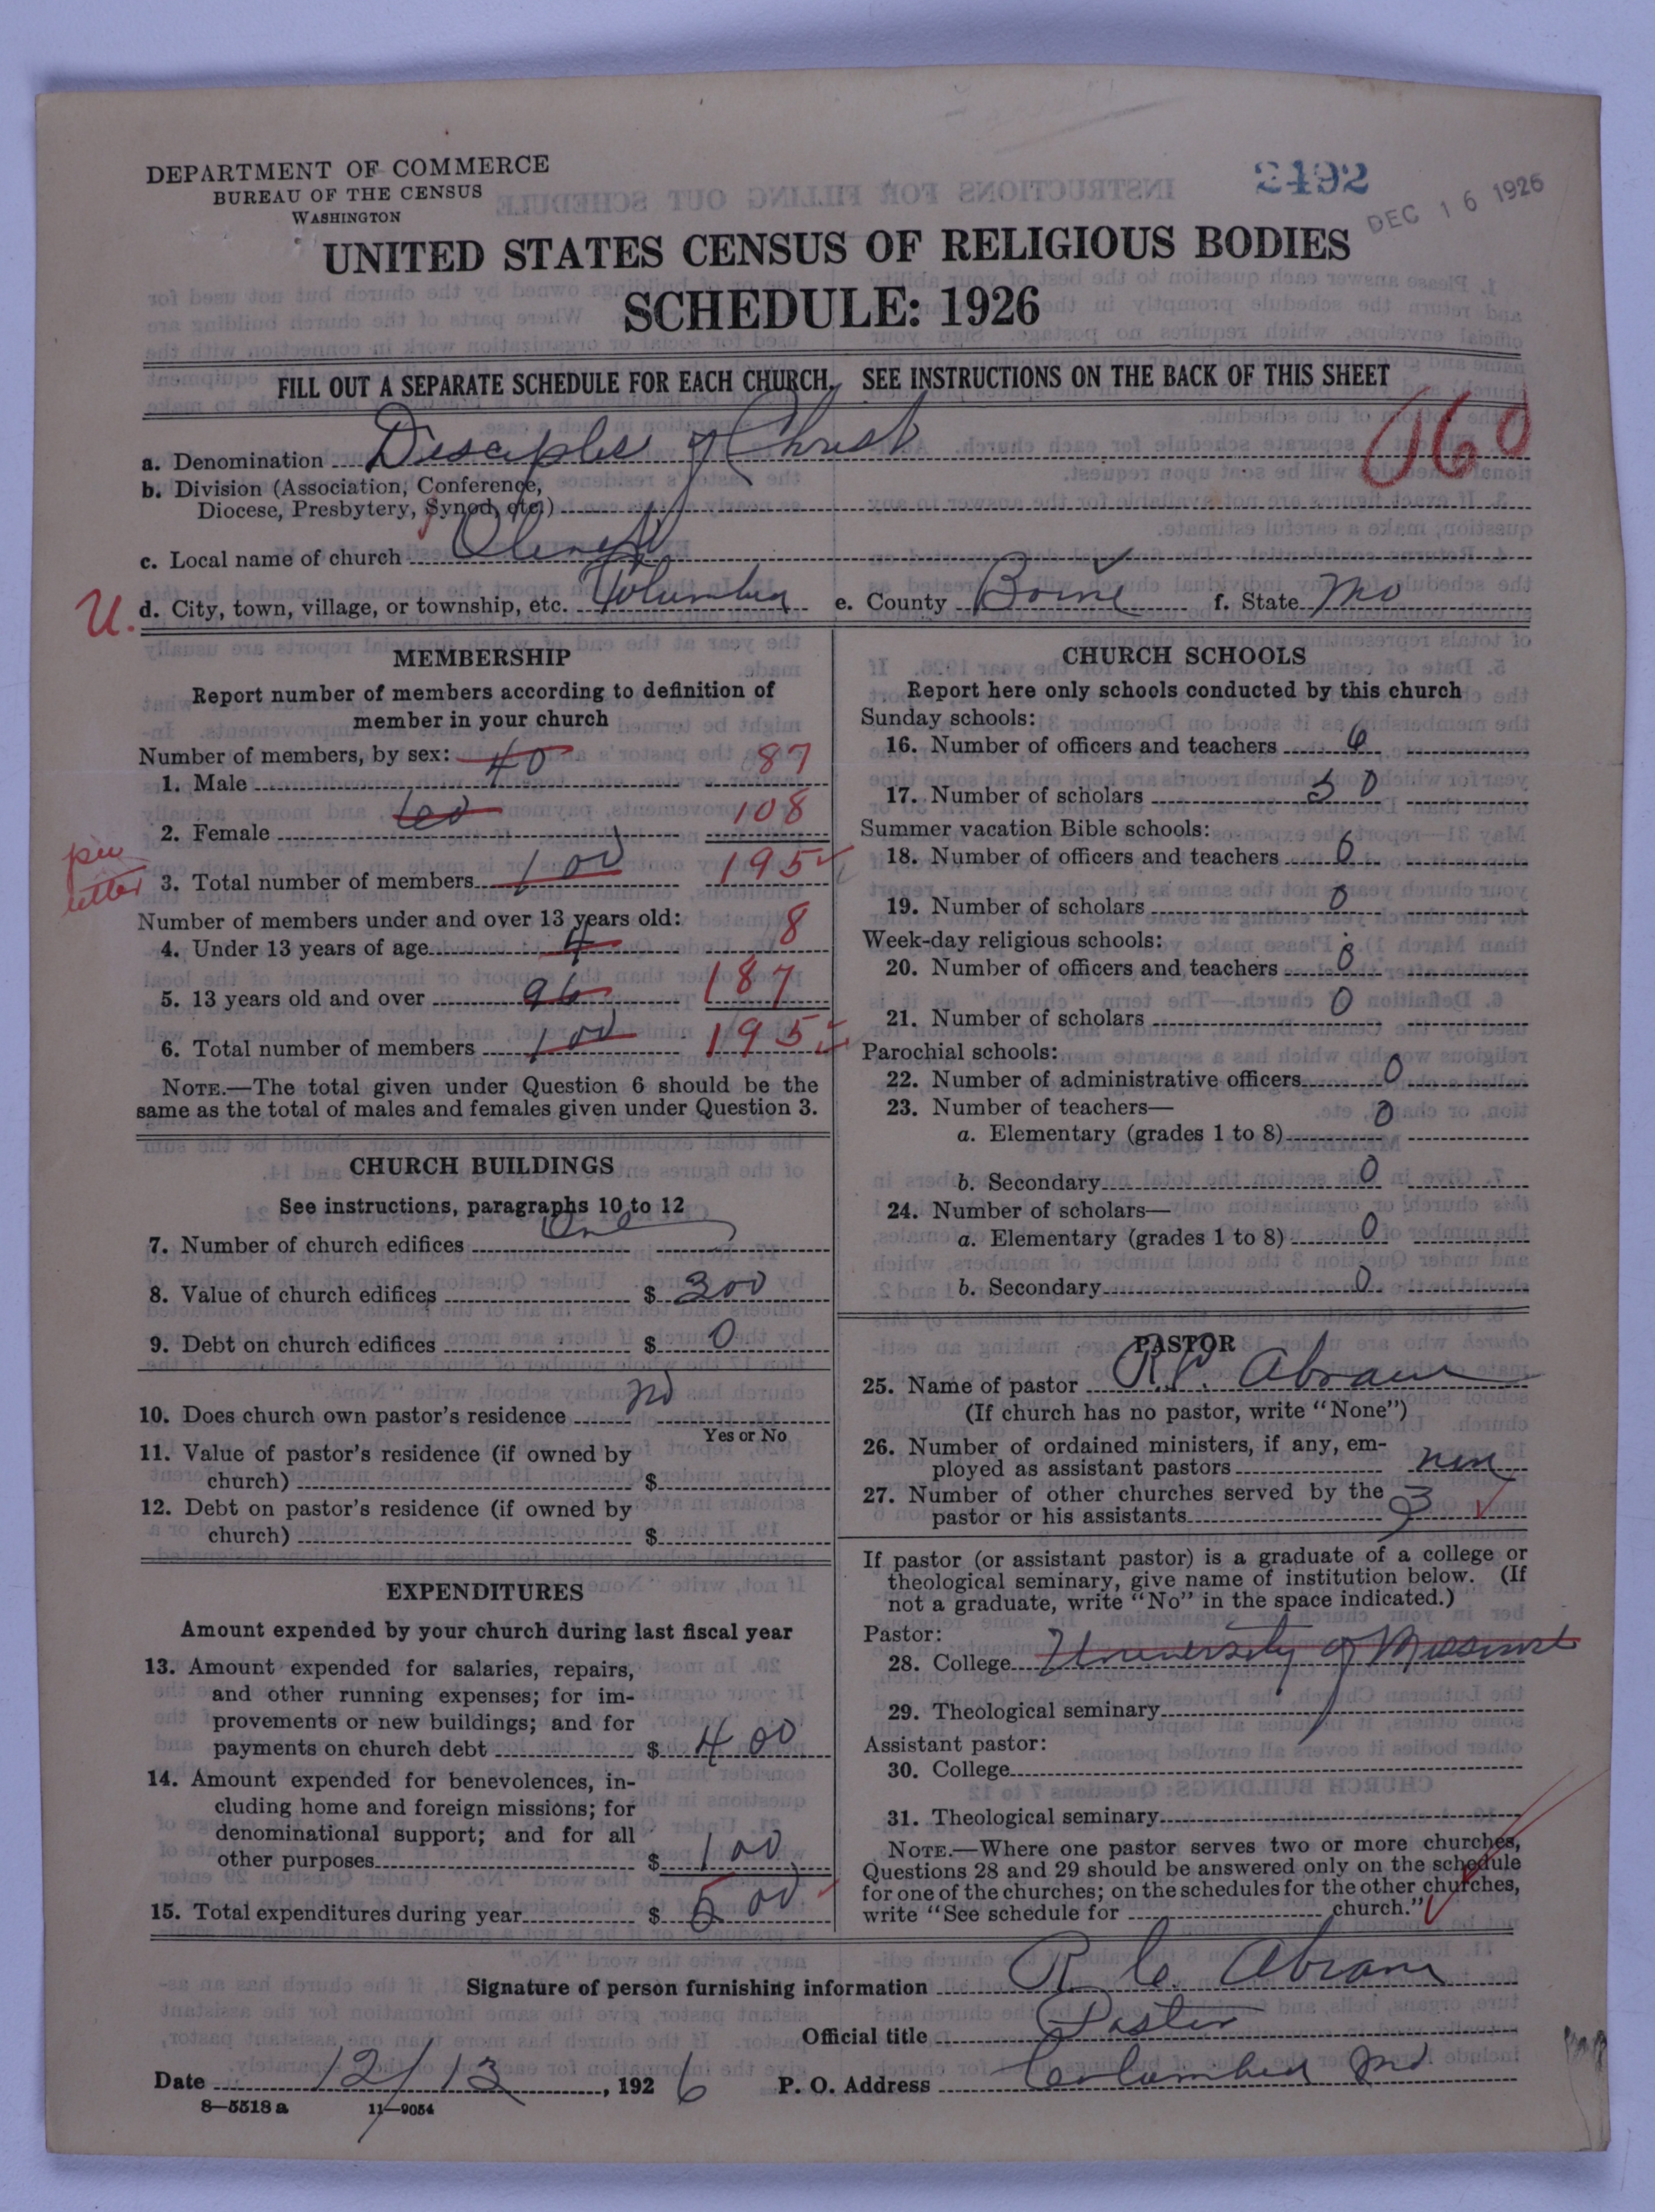 DEPARTMENT OF COMMERCE
BUREAU OF THE CENSUS
WASHINGTON
2492
DEC 16 1926
UNITED STATES CENSUS OF RELIGIOUS BODIES
SCHEDULE: 1926
FILL OUT A SEPARATE SCHEDULE FOR EACH CHURCH. SEE INSTRUCTIONS ON THE BACK OF THIS SHEET
160
a. Denomination Disciples of Christ
b. Division (Association, Conference,
Diocese, Presbytery, Synod, etc.)
c. Local name of church Olivet
U. d. City, town, village, or township, etc. Columbia e. County Boone f. State Mo
MEMBERSHIP
Report number of members according to definition of
member in your church
Number of members, by sex:
1. Male 40 87
2. Female 60 108
per letter
3. Total number of members 100 195
Number of members under and over 13 years old:
4. Under 13 years of age 4 8
5. 13 years old and over 96 187
6. Total number of members 100 195
NOTE.—The total given under Question 6 should be the
same as the total of males and females given under Question 3.
CHURCH BUILDINGS
See instructions, paragraphs 10 to 12
7. Number of church edifices One
8. Value of church edifices $ 300
9. Debt on church edifices $ 0
10. Does church own pastor's residence no
Yes or No
11. Value of pastor's residence (if owned by
church) $
12. Debt on pastor's residence (if owned by
church) $
EXPENDITURES
Amount expended by your church during last fiscal year
13. Amount expended for salaries, repairs,
and other running expenses; for im-
provements or new buildings; and for
payments on church debt $ 400
14. Amount expended for benevolences, in-
cluding home and foreign missions; for
denominational support; and for all
other purposes $ 100
15. Total expenditures during year $ 500
CHURCH SCHOOLS
Report here only schools conducted by this church
Sunday schools:
16. Number of officers and teachers 6
17. Number of scholars 50
Summer vacation Bible schools:
18. Number of officers and teachers 0
19. Number of scholars 0
Week-day religious schools:
20. Number of officers and teachers 0
21. Number of scholars 0
Parochial schools:
22. Number of administrative officers 0
23. Number of teachers—
a. Elementary (grades 1 to 8) 0
b. Secondary 0
24. Number of scholars—
a. Elementary (grades 1 to 8) 0
b. Secondary 0
PASTOR
25. Name of pastor R. C. Abram
(If church has no pastor, write "None")
26. Number of ordained ministers, if any, em-
ployed as assistant pastors non
27. Number of other churches served by the
pastor or his assistants 3
If pastor (or assistant pastor) is a graduate of a college or
theological seminary, give name of institution below. (If
not a graduate, write "No" in the space indicated.)
Pastor:
28. College University of Missouri
29. Theological seminary
Assistant pastor:
30. College
31. Theological seminary
NOTE.—Where one pastor serves two or more churches,
Questions 28 and 29 should be answered only on the schedule
for one of the churches; on the schedules for the other churches,
write "See schedule for church."
Signature of person furnishing information R. C. Abram
Official title Pastor
Date 12/13, 1926 P. O. Address Columbia Mo
8—5518 a 11—9054